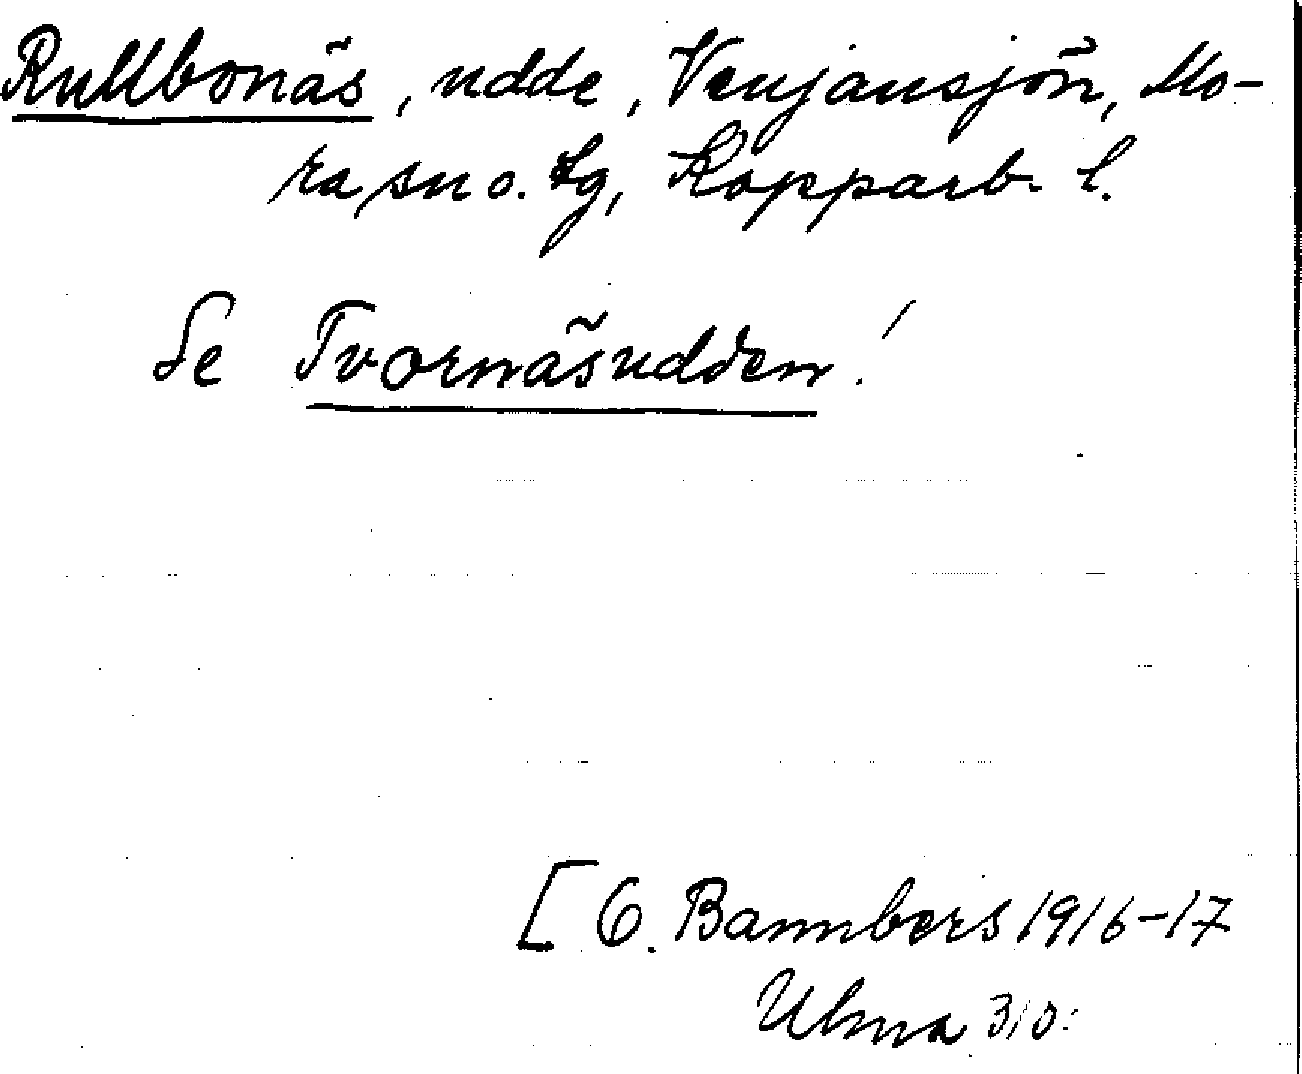 Rullbonäs, udde, Venjansjön, Mo-
ra sn o. tg, Kopparb. l.
Se Tvornäsudden!
[O. Bannbers 1916-17
Ulma 310: